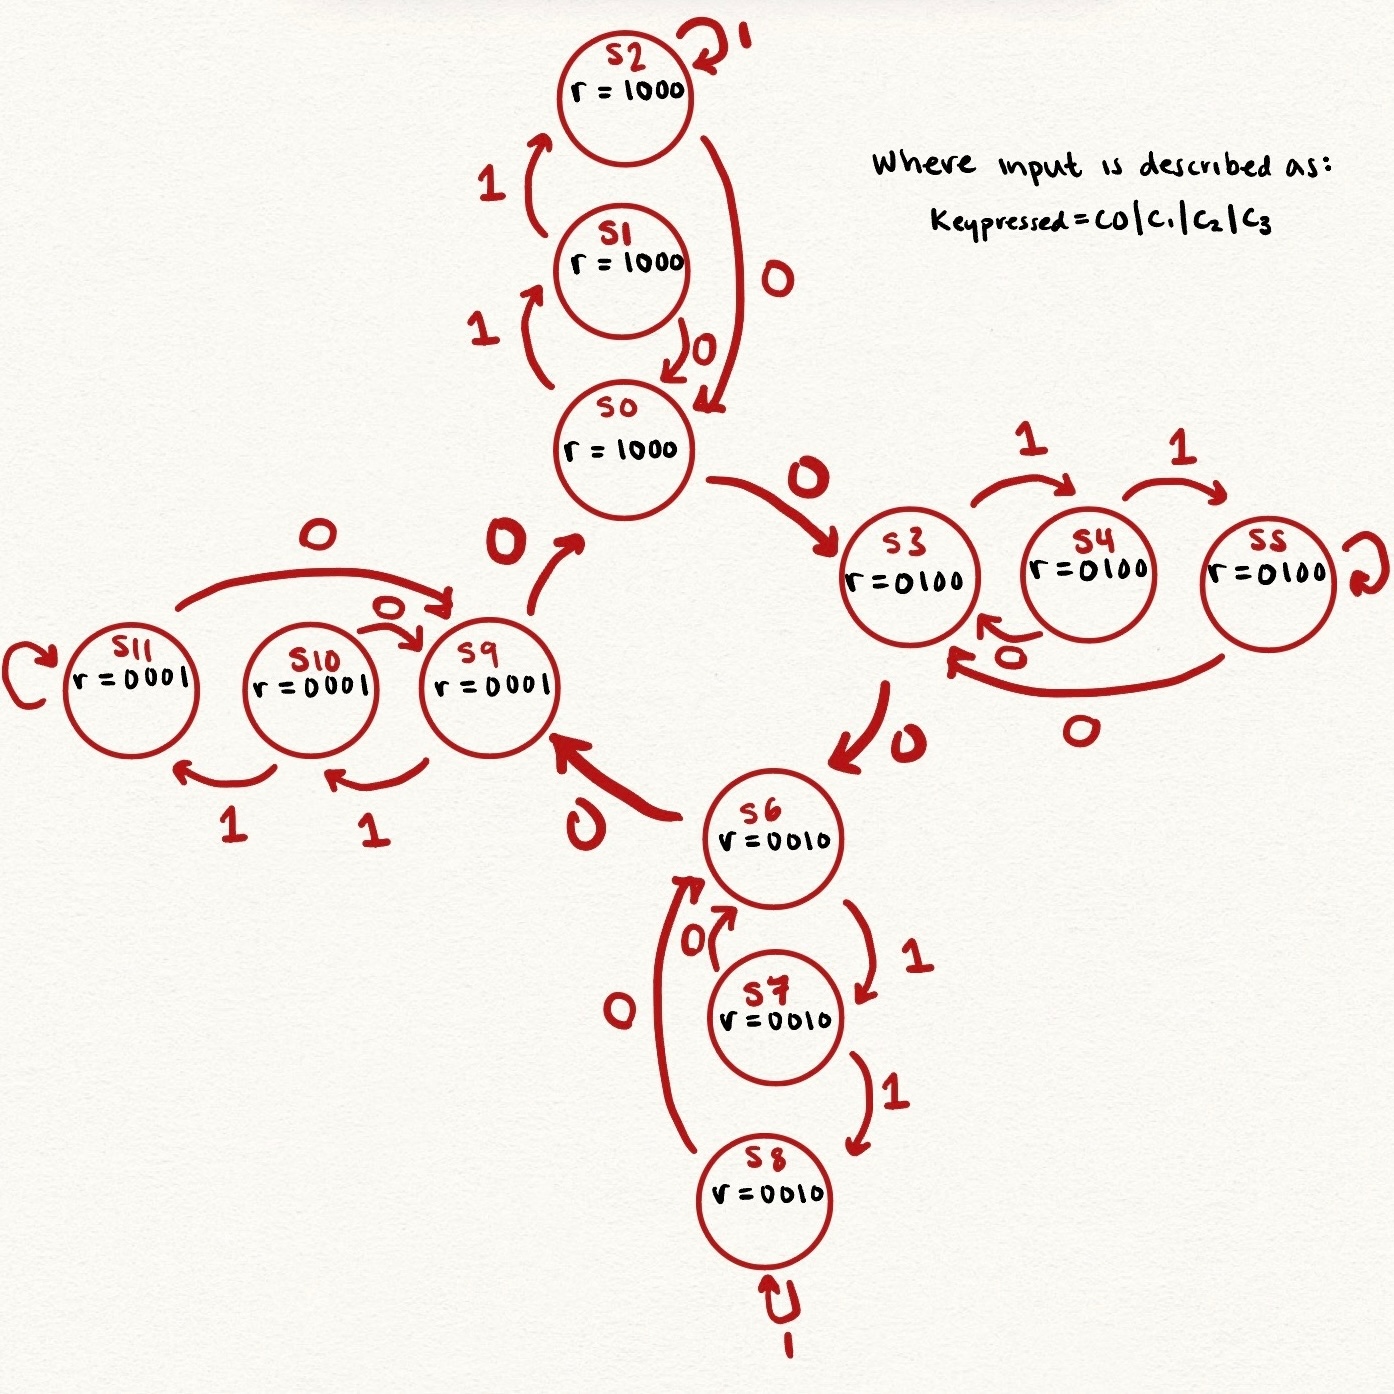 S2
r = 1000
1
Where input is described as:
Keypressed = C0|C1|C2|C3
1
S1
r = 1000
0
1
0
S0
r = 1000
0
1
1
S3
r = 0100
S4
r = 0100
S5
r = 0100
0
0
0
0
0
S11
r = 0001
S10
r = 0001
S9
r = 0001
1
1
0
0
S6
r = 0010
0
1
S7
r = 0010
0
1
S8
r = 0010
1